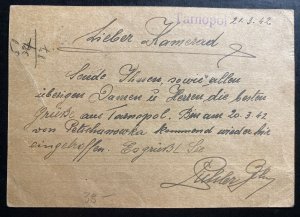 Tarnopol 21.3.42
Lieber Kamerad
Sende Ihnen, sowie allen
übrigen Damen u Herren, die besten
Grüße aus Tarnopol. Bin am 20.3.42
von kommend wieder hier
eingetroffen. Es grüßt Sie
38 -